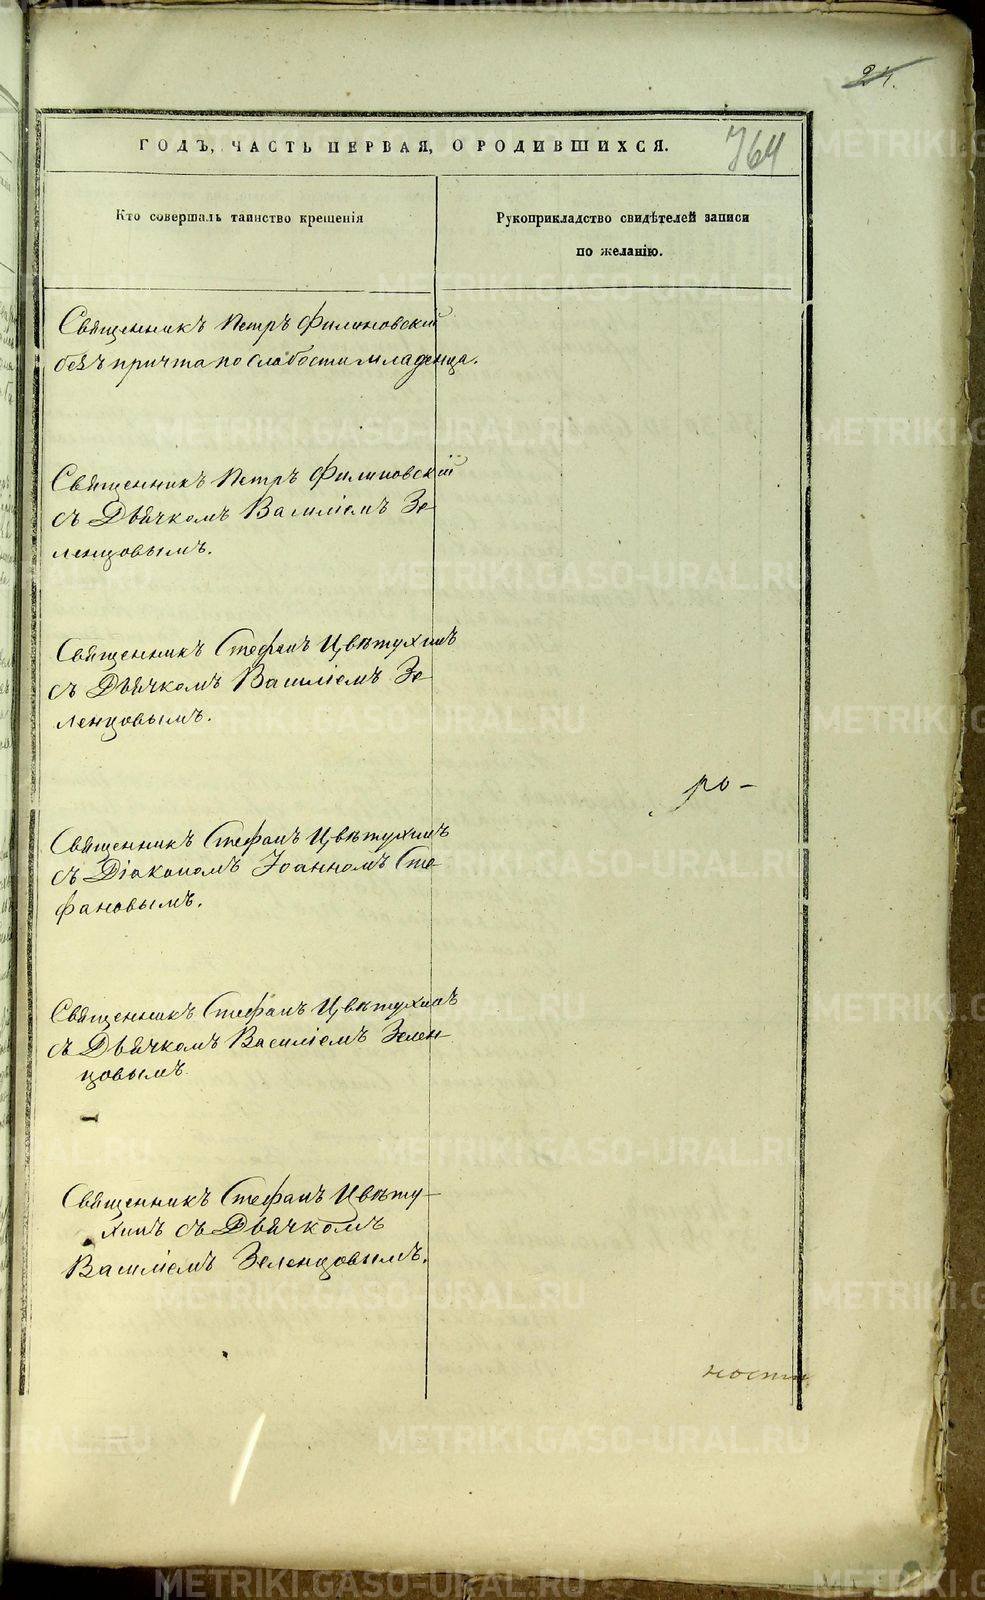 24.
ГОДЪ, ЧАСТЬ ПЕРВАЯ, О РОДИВШИХСЯ.
764
Кто совершалъ таинство крещенія
Рукоприкладство свидѣтелей записи
по желанію.
Священникъ Петръ Филиновскій
безъ причта по слабости младенца.
Священникъ Петръ Филиновскій
съ Дьячкомъ Василіемъ Зе-
ленцовымъ.
Священникъ Стефанъ Цвѣтухинъ
съ Дьячкомъ Василіемъ Зе-
ленцовымъ.
ро-
Священникъ Стефанъ Цвѣтухинъ
съ Діакономъ Іоанномъ Сте-
фановымъ.
Священникъ Стефанъ Цвѣтухинъ
съ Дьячкомъ Василіемъ Зелен-
цовымъ
Священникъ Стефанъ Цвѣту-
хинъ съ Дьячкомъ
Василіемъ Зеленцовымъ.
ности
METRIKI.GASO-URAL.RU